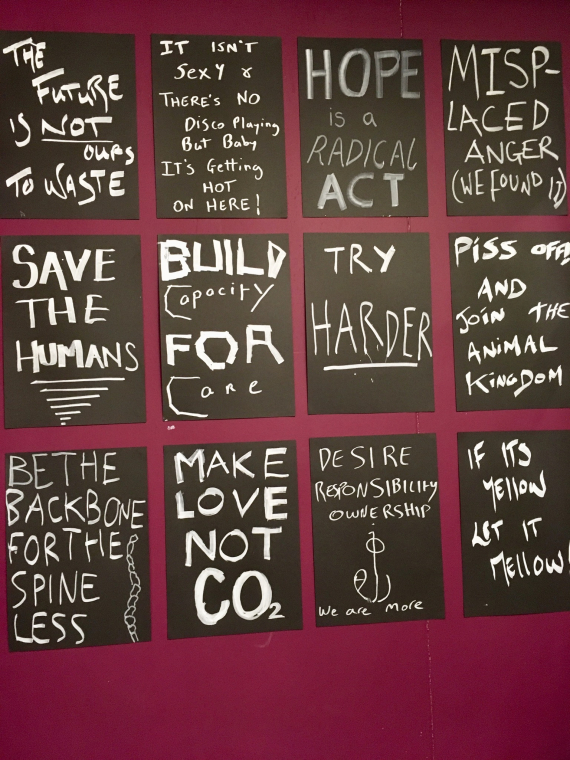 THE
FUTURE
IS NOT
OURS
TO WASTE
IT ISN'T
SEXY &
THERE'S NO
DISCO PLAYING
BUT BABY
IT'S GETTING
HOT
ON HERE!
HOPE
is a
RADICAL
ACT
MISP-
LACED
ANGER
(WE FOUND IT)
SAVE
THE
HUMANS
BUILD
Capacity
FOR
Care
TRY
HARDER
PISS OFF
AND
JOIN THE
ANIMAL
KINGDOM
BE THE
BACKBONE
FOR THE
SPINE
LESS
MAKE
LOVE
NOT
CO₂
DESIRE
RESPONSIBILITY
OWNERSHIP
We are more
IF ITS
YELLOW
LET IT
MELLOW!